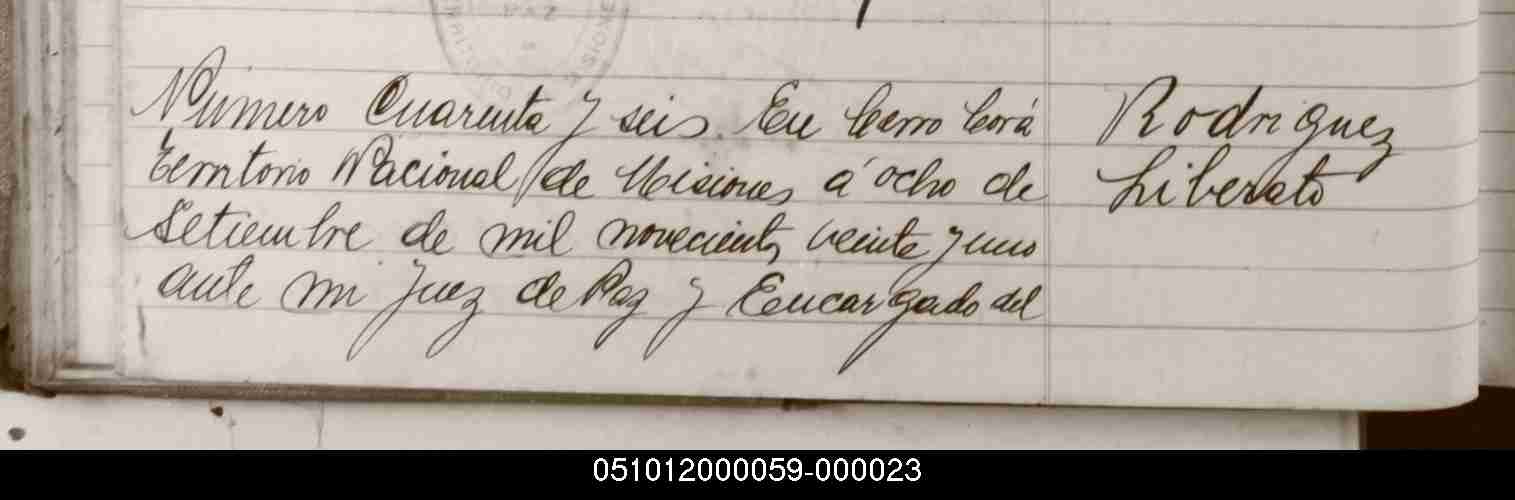 PAZ
MISIONES
Número Cuarenta y seis. En Cerro Corá
Territorio Nacional de Misiones á ocho de
Setiembre de mil novecients veinte y uno
ante mi Juez de Paz y Encargado del
Rodriguez
Liberato
051012000059-000023